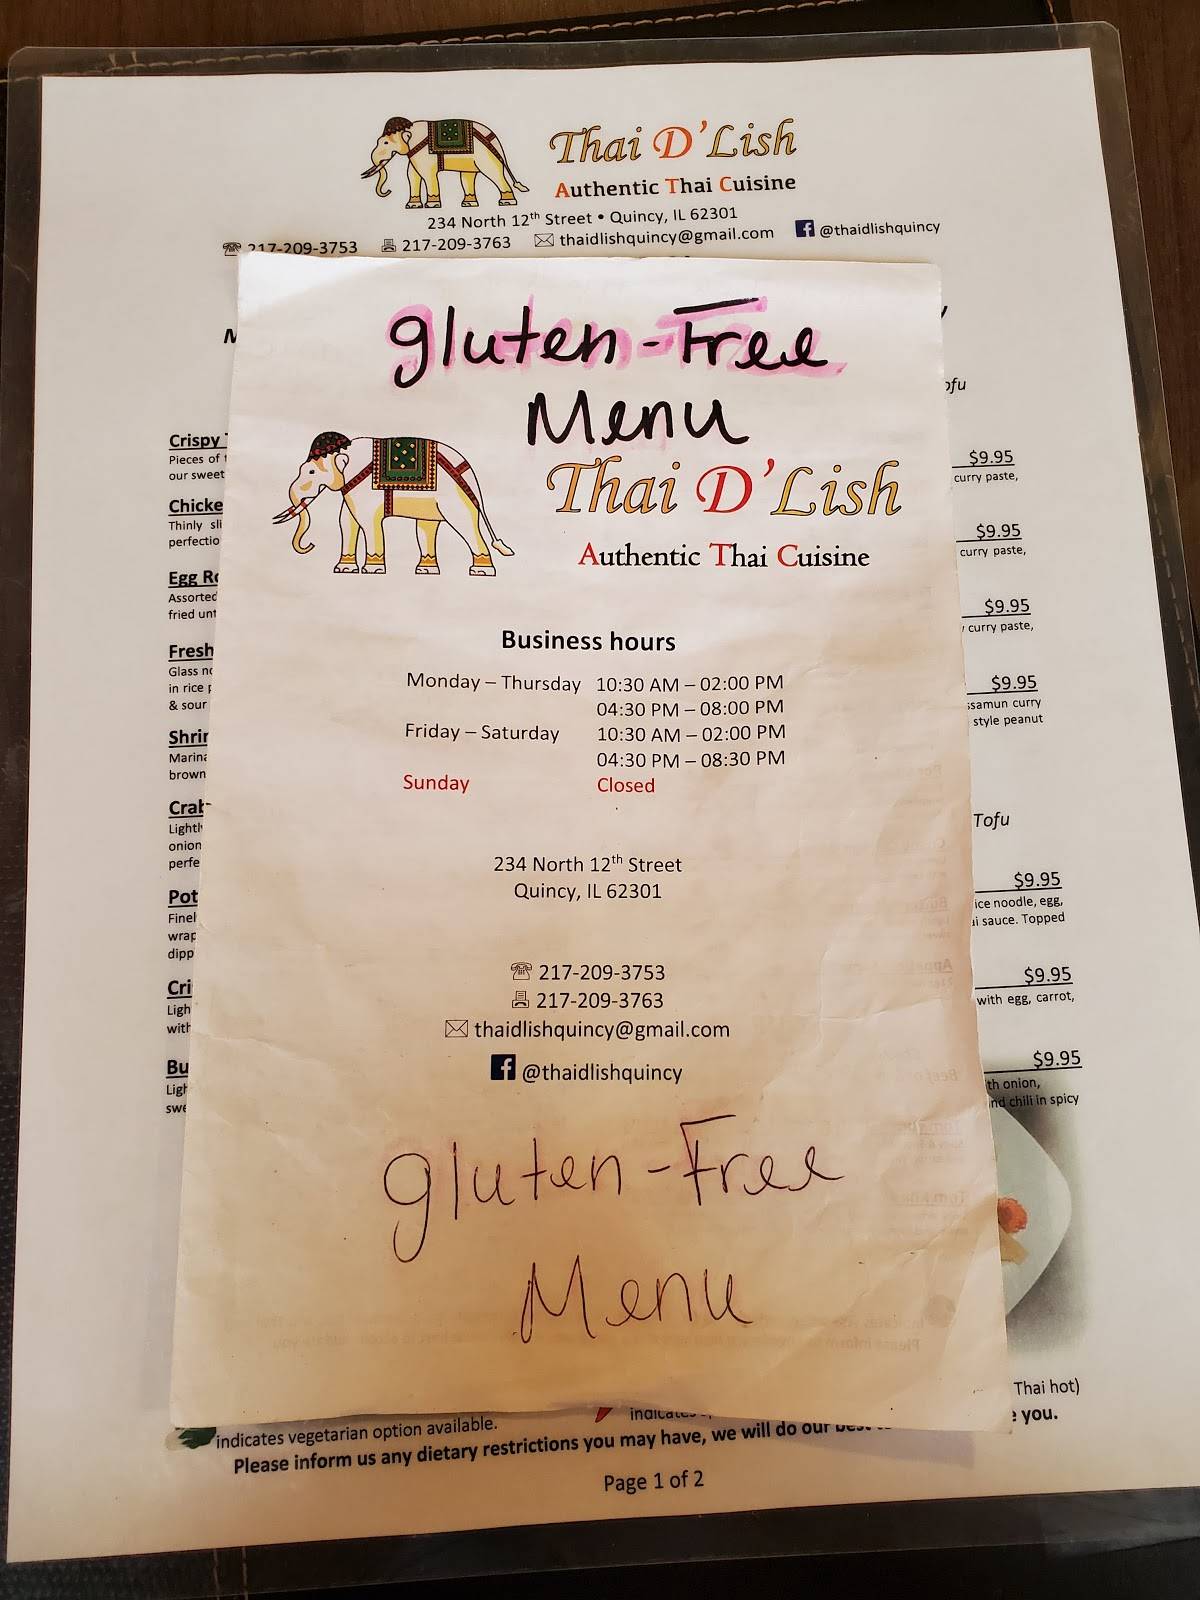 Thai D'Lish
Authentic Thai Cuisine
234 North 12th Street • Quincy, IL 62301
217-209-3753 217-209-3763 thaidlishquincy@gmail.com @thaidlishquincy
gluten-Free
Menu
Thai D'Lish
Authentic Thai Cuisine
Business hours
Monday – Thursday 10:30 AM – 02:00 PM
04:30 PM – 08:00 PM
Friday – Saturday 10:30 AM – 02:00 PM
04:30 PM – 08:30 PM
Sunday Closed
234 North 12th Street
Quincy, IL 62301
217-209-3753
217-209-3763
thaidlishquincy@gmail.com
@thaidlishquincy
gluten-Free
Menu
Crispy
Pieces of
our sweet
Thinly
Egg
Assorted
fried
Fresh
Glass
in rice
& sour
brown
onion
with
$9.95
curry paste,
$9.95
curry paste,
$9.95
curry paste,
$9.95
curry
style peanut
Tofu
$9.95
noodle, egg,
sauce. Topped
$9.95
with egg, carrot,
$9.95
onion,
chili in spicy
Thai hot)
indicates vegetarian option available.
Please inform us any dietary restrictions you may have, we will do our you.
Page 1 of 2